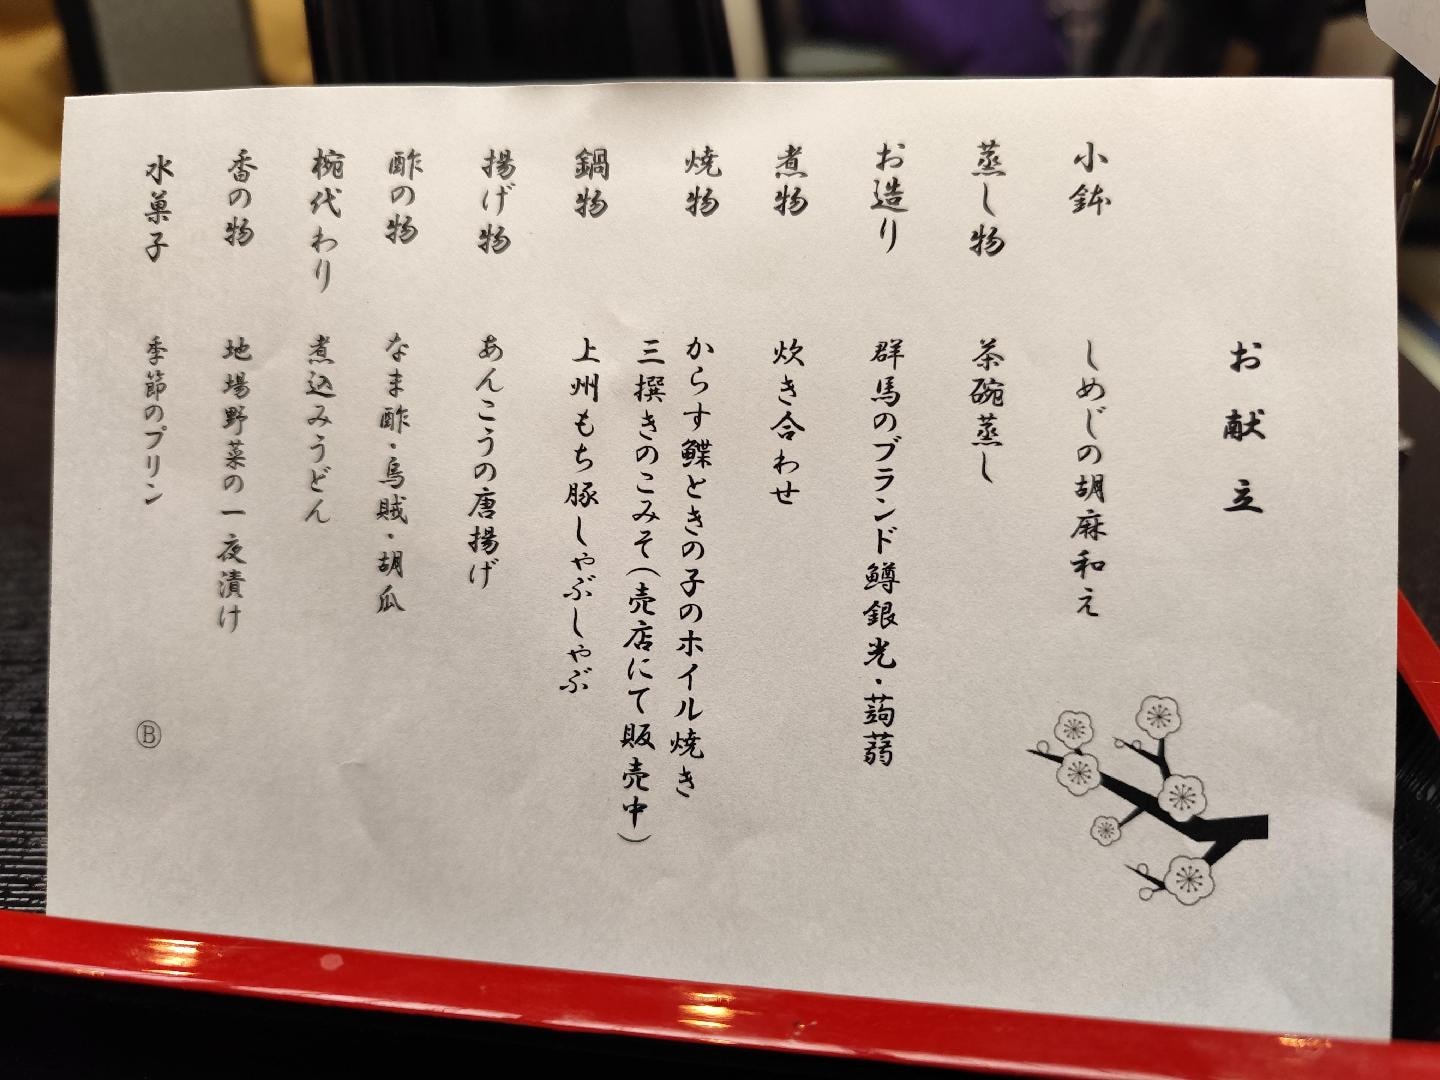 お献立
小鉢 しめじの胡麻和え
蒸し物 茶碗蒸し
お造り 群馬のブランド鱒銀光・蒟蒻
煮物 炊き合わせ
焼物 からす鰈ときの子のホイル焼き
三撰きのこみそ(売店にて販売中)
鍋物 上州もち豚しゃぶしゃぶ
揚げ物 あんこうの唐揚げ
酢の物 なま酢・烏賊・胡瓜
椀代わり 煮込みうどん
香の物 地場野菜の一夜漬け
水菓子 季節のプリン
Ⓑ